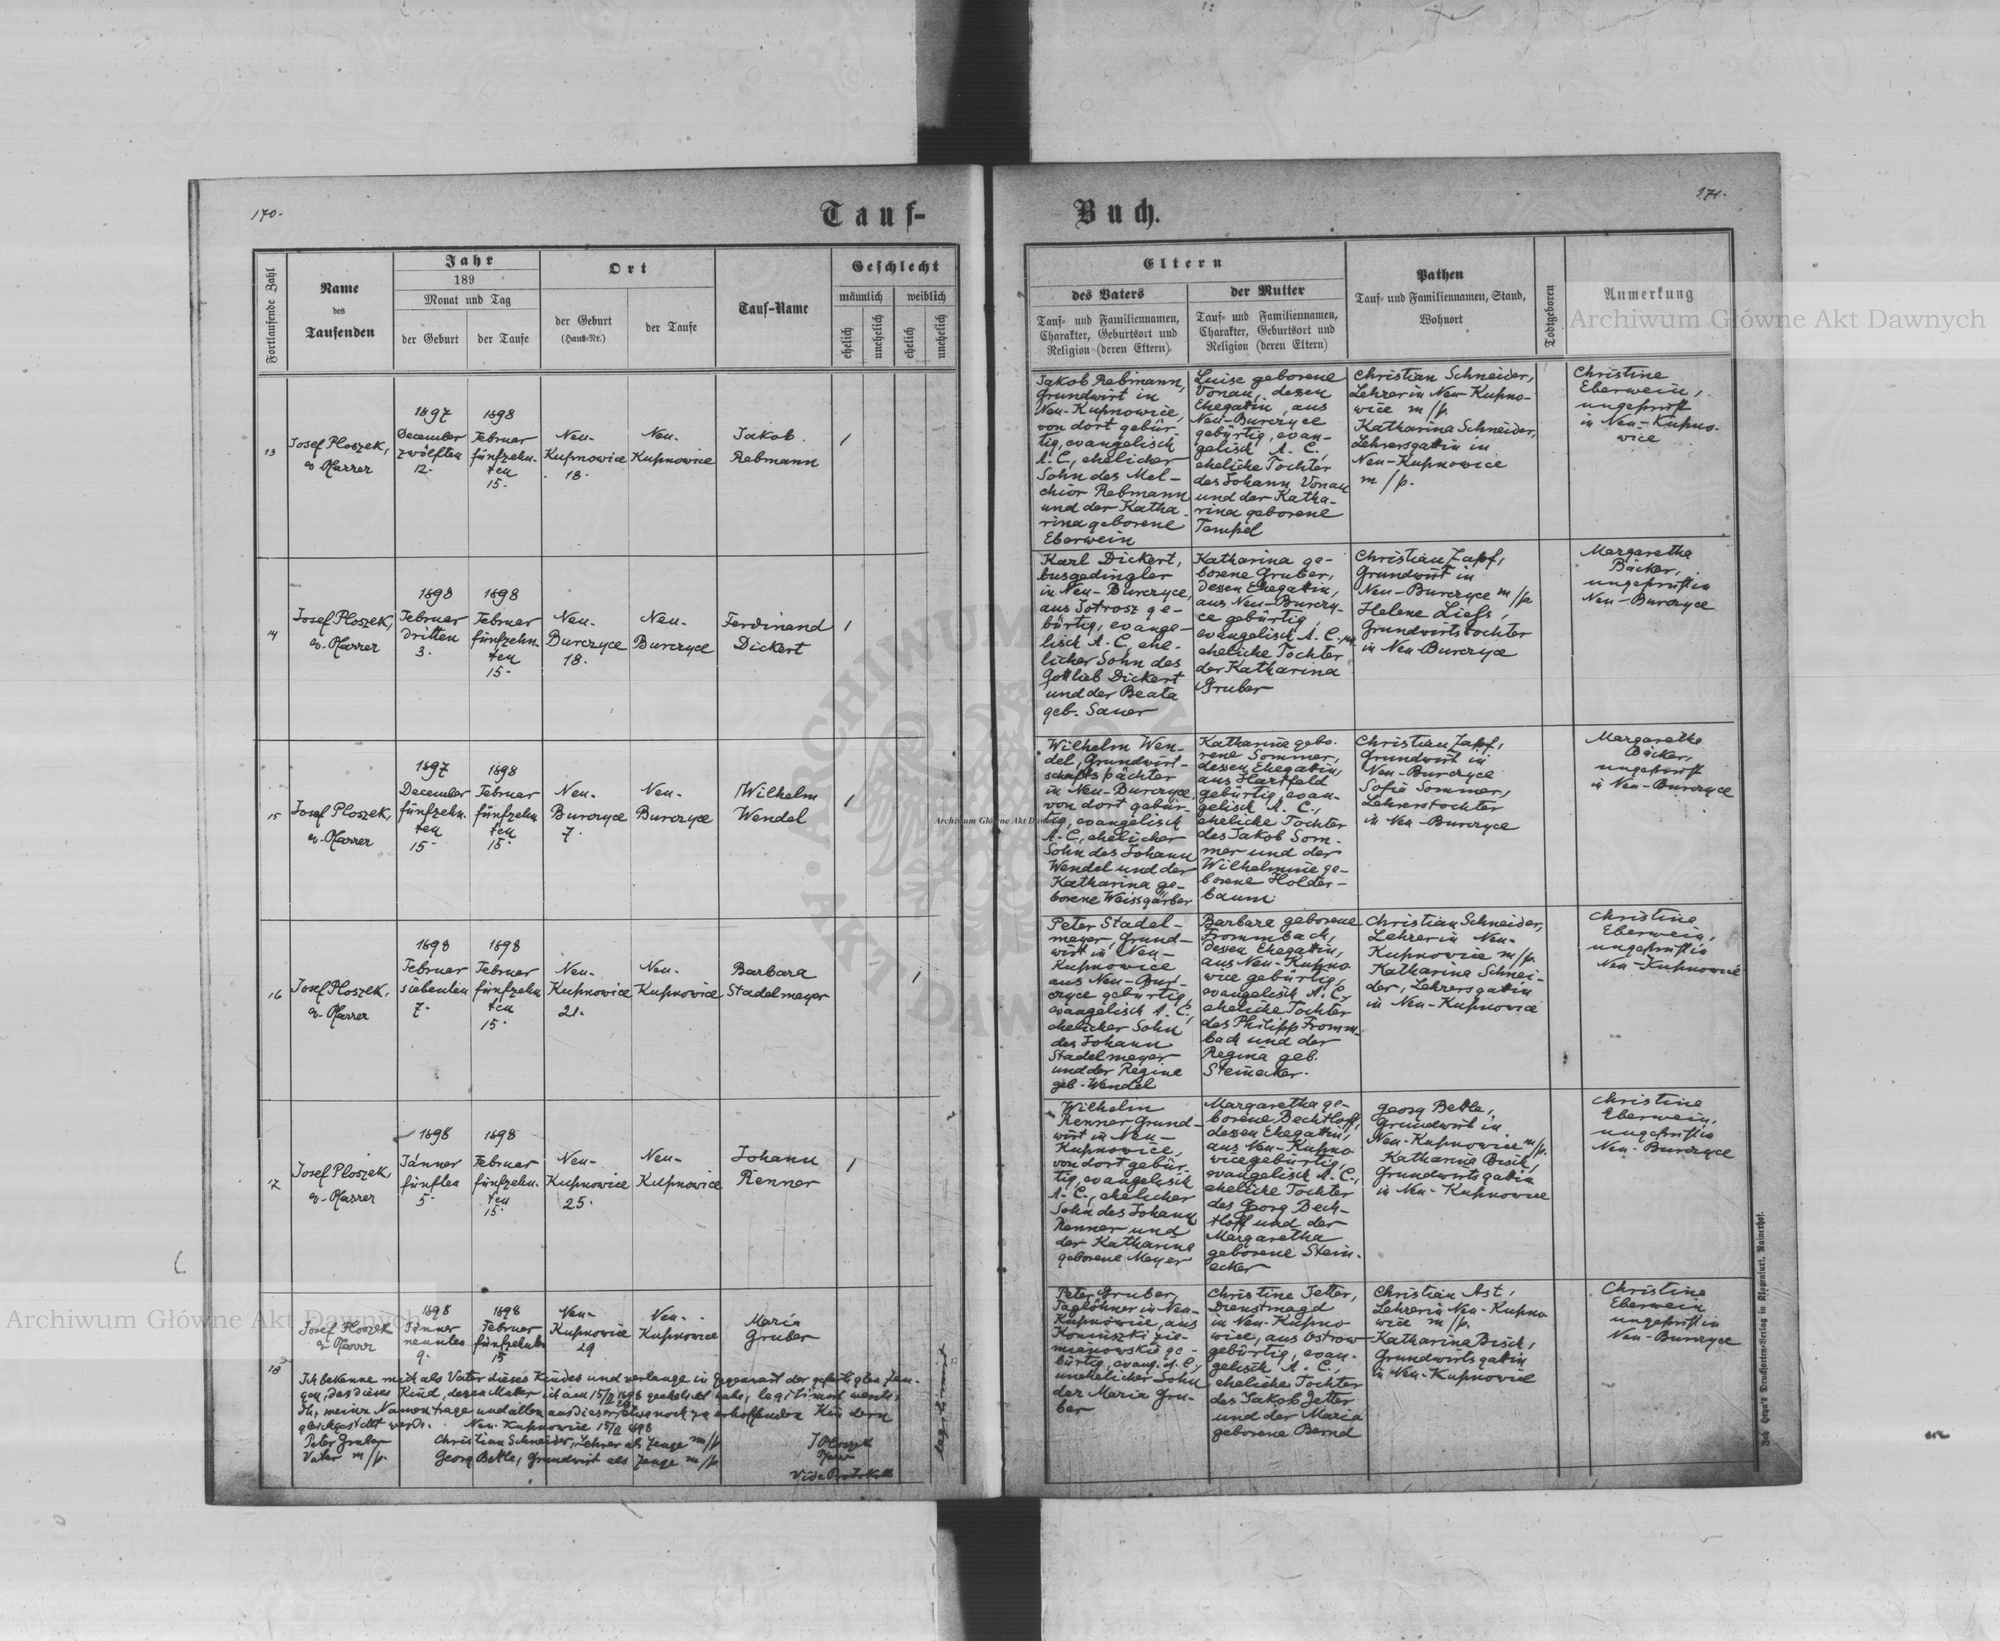 170.
Tauf-
Fortlaufende Zahl
Name
des
Taufenden
Jahr
189
Monat und Tag
der Geburt
der Taufe
Ort
der Geburt
(Haus-Nr.)
der Taufe
Tauf-Name
Geschlecht
männlich
weiblich
ehelich
unehelich
ehelich
unehelich
13
Josef Ploszek,
ev. Pfarrer
1897
December
zwölften
12.
1898
Februar
fünfzehn-
ten
15.
Neu-
Kupnowice
18.
Neu-
Kupnowice
Jakob
Rebmann
1
14
Josef Ploszek,
ev. Pfarrer
1898
Februar
dritten
3.
1898
Februar
fünfzehn-
ten
15.
Neu-
Burczyce
18.
Neu-
Burczyce
Ferdinand
Dickert
1
15
Josef Ploszek,
ev. Pfarrer
1897
December
fünfzehn-
ten
15.
1898
Februar
fünfzehn
ten
15.
Neu-
Burczyce
7.
Neu-
Burczyce
Wilhelm
Wendel
1
16
Josef Ploszek,
ev. Pfarrer
1898
Februar
siebenten
7.
1898
Februar
fünfzehn
ten
15.
Neu-
Kupnowice
21.
Neu-
Kupnowice
Barbara
Stadelmeyer
1
17
Josef Ploszek,
ev. Pfarrer
1898
Jänner
fünften
5.
1898
Februar
fünfzehn-
ten
15.
Neu-
Kupnowice
25.
Neu-
Kupnowice
Johann
Renner
1
18
Josef Ploszek
ev. Pfarrer
1898
Jänner
neunten
9.
1898
Februar
fünfzehnten
15
Neu-
Kupnowice
29
Neu-
Kupnowice
Maria
Gruber
Ich bekenne mich als Vater dieses Kindes und verlange in Gegenwart der gefertigten Zeu-
gen, das dieses Kind, dessen Mutter ich am 15/II 1898 geehelicht habe, legitimirt werde,
meinen Namen trage und allen aus dieser Ehe noch zu erhoffenden Kindern
gleichgestellt werde. Neu-Kupnowice 15/II 1898
Peter Gruber Christian Schneider, Lehrer als Zeuge m/p J Ploszek
Vater m/p. Georg Bettle, Grundwirt als Zeuge m/p Pfarrer
Vide Protokoll
legitimirt
171.
Buch.
Eltern
des Vaters
Tauf- und Familiennamen,
Charakter, Geburtsort und
Religion (deren Eltern)
der Mutter
Tauf- und Familiennamen,
Charakter, Geburtsort und
Religion (deren Eltern)
Pathen
Tauf- und Familiennamen, Stand,
Wohnort
Todtgeboren
Anmerkung
Jakob Rebmann,
Grundwirt in
Neu-Kupnowice,
von dort gebür-
tig, evangelisch
A. C., ehelicher
Sohn des Mel-
chior Rebmann
und der Katha
rina geborene
Eberwein
Luise geborene
Vonau, dessen
Ehegattin, aus
Neu-Burczyce
gebürtig, evan-
gelisch A. C.,
eheliche Tochter
des Johann Vonau
und der Katha-
rina geborene
Tempel
Christian Schneider,
Lehrer in Neu-Kupno-
wice m/p.
Katharina Schneider,
Lehrersgattin in
Neu-Kupnowice
m/p.
Christine
Eberwein,
ungeprüft
in Neu-Kupno-
wice
Karl Dickert,
Ausgedingler
in Neu-Burczyce,
aus Jotrosz ge-
bürtig, evange-
lisch A. C., ehe-
licher Sohn des
Gottlieb Dickert
und der Beata
geb. Sauer
Katharina ge-
borene Gruber,
dessen Ehegattin,
aus Neu-Burczy-
ce gebürtig,
evangelisch A. C.
eheliche Tochter
der Katharina
Gruber
Christian Zapf,
Grundwirt in
Neu-Burczyce m/p
Helene Liess,
Grundwirtstochter
in Neu-Burczyce
Margaretha
Bäcker,
ungeprüft in
Neu-Burczyce
Wilhelm Wen-
del, Grundwirt-
schaftspächter
in Neu-Burczyce,
von dort gebür-
tig, evangelisch
A. C., ehelicher
Sohn des Johann
Wendel und der
Katharina ge-
borene Weissgärber
Katharina gebo-
rene Sommer,
dessen Ehegattin,
aus Hartfeld
gebürtig, evan-
gelisch A. C.,
eheliche Tochter
des Jakob Som-
mer und der
Wilhelmine ge-
borene Holder-
baum
Christian Zapf,
Grundwirt in
Neu-Burczyce
Sofia Sommer,
Lehrerstochter
in Neu-Burczyce
Margaretha
Bäcker,
ungeprüft
in Neu-Burczyce
Peter Stadel-
meyer, Grund-
wirt in Neu-
Kupnowice
aus Neu-Bur-
czyce gebürtig,
evangelisch A. C.,
ehelicher Sohn
des Johann
Stadelmeyer
und der Regine
geb. Wendel
Barbara geborene
Frommbach,
dessen Ehegattin,
aus Neu-Kupno
wice gebürtig,
evangelisch A. C.,
eheliche Tochter
des Philipp Fromm-
bach und der
Regina geb.
Steinecker.
Christian Schneider,
Lehrer in Neu-
Kupnowice m/p.
Katharina Schnei-
der, Lehrersgattin
in Neu-Kupnowice
Christine
Eberwein,
ungeprüft in
Neu-Kupnowice
Wilhelm
Renner Grund-
wirt in Neu-
Kupnowice,
von dort gebür-
tig, evangelisch
A. C., ehelicher
Sohn des Johann
Renner und
der Katharina
geborene Meyer
Margaretha ge-
borene Bechtloff,
dessen Ehegattin,
aus Neu-Kupno
wice gebürtig,
evangelisch A. C.,
eheliche Tochter
des Georg Bech-
tloff und der
Margaretha
geborene Stein-
ecker
Georg Bettle,
Grundwirt in
Neu-Kupnowice m/p.
Katharina Bisch,
Grundwirtsgattin
in Neu-Kupnowice
Christine
Eberwein,
ungeprüft in
Neu-Burczyce
Peter Gruber,
Taglöhner in Neu-
Kupnowice, aus
Koniuszki sie-
mianowskie ge-
bürtig, evang. A. C.,
unehelicher Sohn
der Maria Gru-
ber
Christine Jetter,
Dienstmagd
in Neu-Kupno
wice, aus Ostrow
gebürtig, evan-
gelisch A. C.,
eheliche Tochter
des Jakob Jetter
und der Maria
geborene Bernd
Christian Ast,
Lehrer in Neu-Kupno
wice m/p.
Katharina Bisch,
Grundwirtsgattin
in Neu-Kupnowice
Christine
Eberwein
ungeprüft in
Neu-Burczyce
Joh. Heyn's Drucksorten-Verlag in Klagenfurt, Rainerhof.
Archiwum Główne Akt Dawnych
Archiwum Główne Akt Dawnych
Archiwum Główne Akt Dawnych